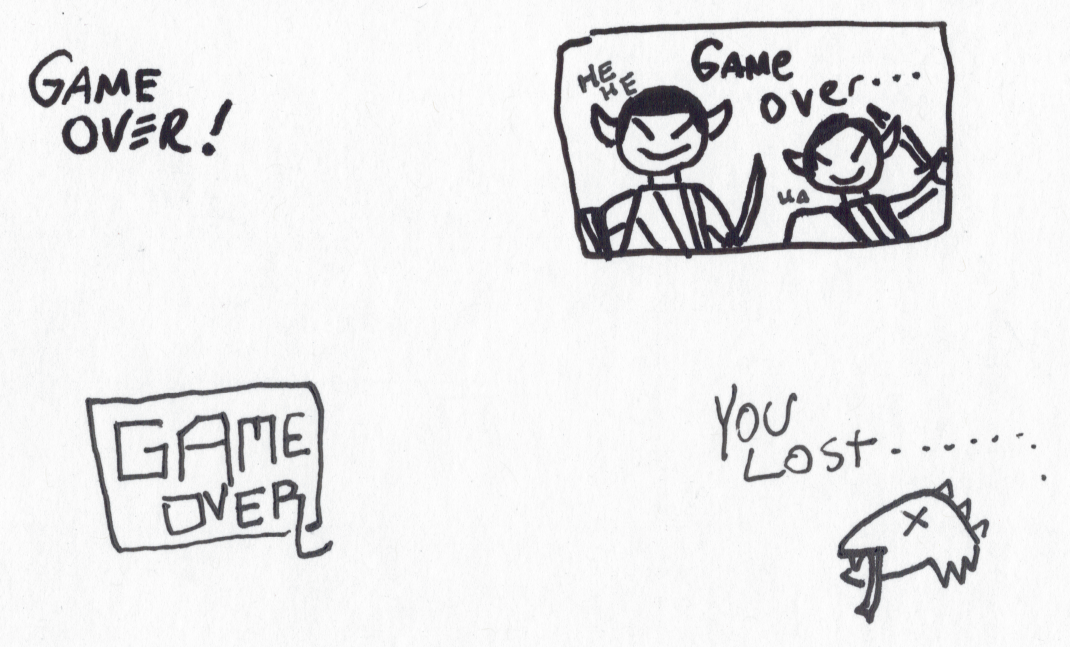 GAME
OVER!
HE
HE
GAME
over...
HA
GAME
OVER
YOU
LOST........